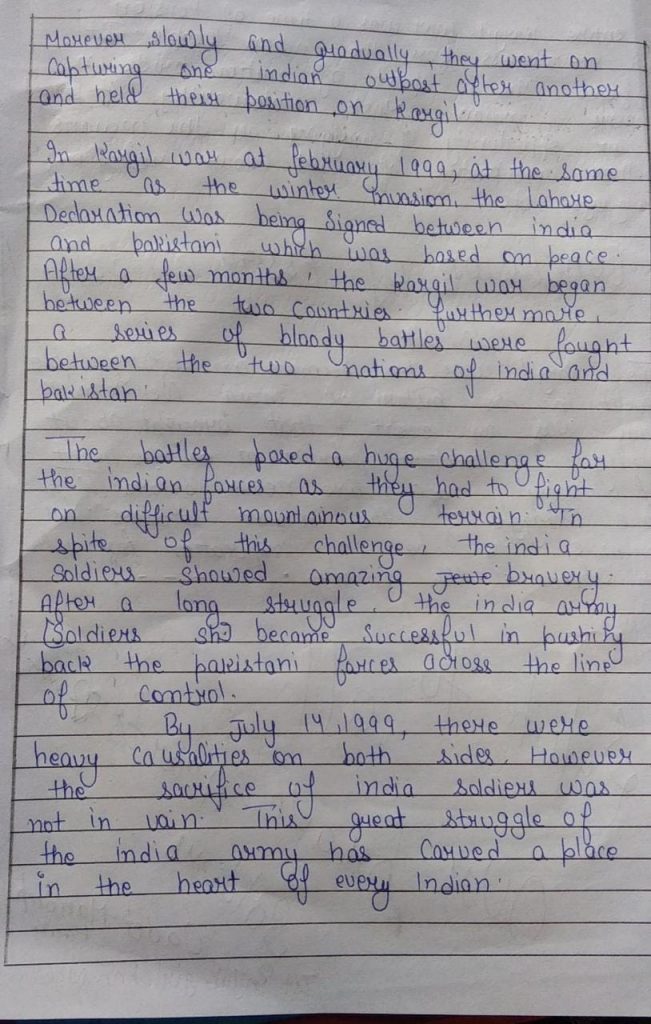 Morever slowly and gradually, they went on
capturing one indian outpost after another
and held their position on Kargil.
In Kargil war at february 1999, at the same
time as the winter invasion, the Lahore
Declaration was being signed between india
and pakistani which was based on peace.
After a few months, the Kargil war began
between the two countries. furthermore,
a series of bloody battles were fought
between the two nations of india and
pakistan.
The battles posed a huge challenge for
the indian forces as they had to fight
on difficult mountainous terrain. In
spite of this challenge, the india
soldiers showed amazing bravery.
After a long struggle, the india army
(Soldiers became successful in pushing
back the pakistani forces across the line
of control.
By July 14, 1999, there were
heavy causalities on both sides. However
the sacrifice of india soldiers was
not in vain. This great struggle of
the india army has carved a place
in the heart of every Indian.